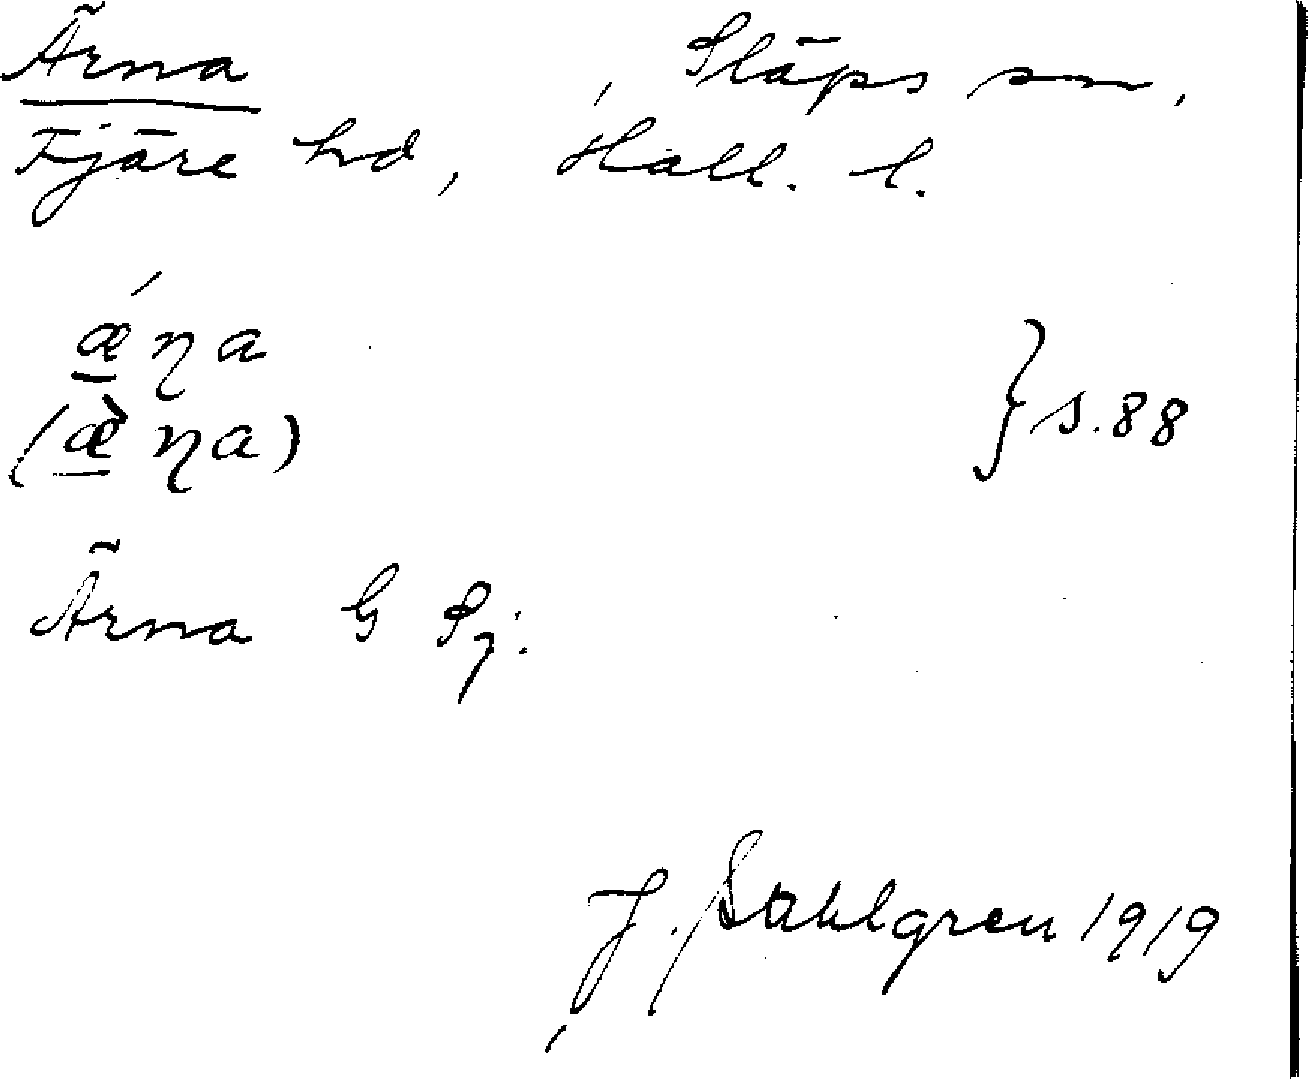 Ärna, Släps sn,
Fjäre hd, Hall. l.
ǽ̱ ꞃa
(æ̱̀ ꞃa) } s. 88
Ärna G Sj.
J. Sahlgren 1919